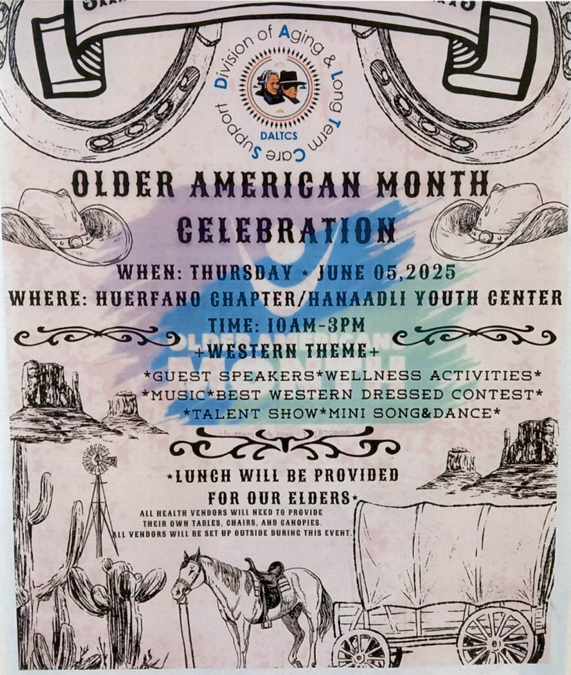 Division of Aging & Long Term Care Support
DALTCS
OLDER AMERICAN MONTH
CELEBRATION
WHEN: THURSDAY ⋆ JUNE 05,2025
WHERE: HUERFANO CHAPTER/HANAADLI YOUTH CENTER
TIME: 10AM-3PM
OLDER AMERICANS
+WESTERN THEME+
MONTH
*GUEST SPEAKERS*WELLNESS ACTIVITIES*
*MUSIC*BEST WESTERN DRESSED CONTEST*
*TALENT SHOW*MINI SONG&DANCE*
⋆LUNCH WILL BE PROVIDED
FOR OUR ELDERS⋆
ALL HEALTH VENDORS WILL NEED TO PROVIDE
THEIR OWN TABLES, CHAIRS, AND CANOPIES.
ALL VENDORS WILL BE SET UP OUTSIDE DURING THIS EVENT.